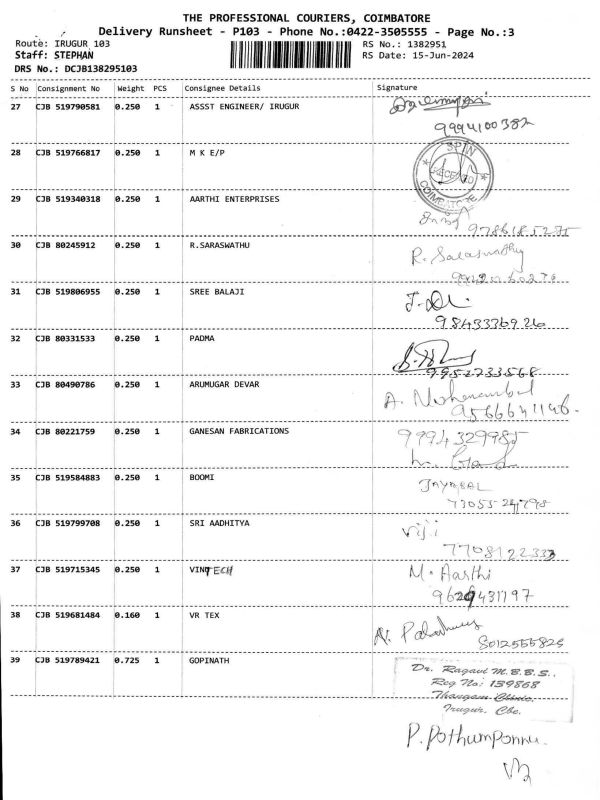 THE PROFESSIONAL COURIERS, COIMBATORE
Delivery Runsheet - P103 - Phone No.:0422-3505555 - Page No.:3
Route: IRUGUR 103
RS No.: 1382951
Staff: STEPHAN
RS Date: 15-Jun-2024
DRS No.: DCJB138295103
S No Consignment No Weight PCS Consignee Details Signature
27 CJB 519790581 0.250 1 ASSST ENGINEER/ IRUGUR
9994100382
28 CJB 519766817 0.250 1 M K E/P
SPIN
COIMBATORE
29 CJB 519340318 0.250 1 AARTHI ENTERPRISES
30 CJB 80245912 0.250 1 R.SARASWATHU
R. Saraswathy
31 CJB 519806955 0.250 1 SREE BALAJI
9843336926
32 CJB 80331533 0.250 1 PADMA
9952733568
33 CJB 80490786 0.250 1 ARUMUGAR DEVAR
9566641146.
34 CJB 80221759 0.250 1 GANESAN FABRICATIONS
9994329985
35 CJB 519584883 0.250 1 BOOMI
JAYABAL
36 CJB 519799708 0.250 1 SRI AADHITYA
Viji
7708122333
37 CJB 519715345 0.250 1 VINTECH
M. Aarthi
9629431197
38 CJB 519681484 0.160 1 VR TEX
8012555825
39 CJB 519789421 0.725 1 GOPINATH
Dr. Ragavi M.B.B.S.,
Reg No: 139868
Thangam Clinic
Irugur. Cbe.
P. Pothumponnu.